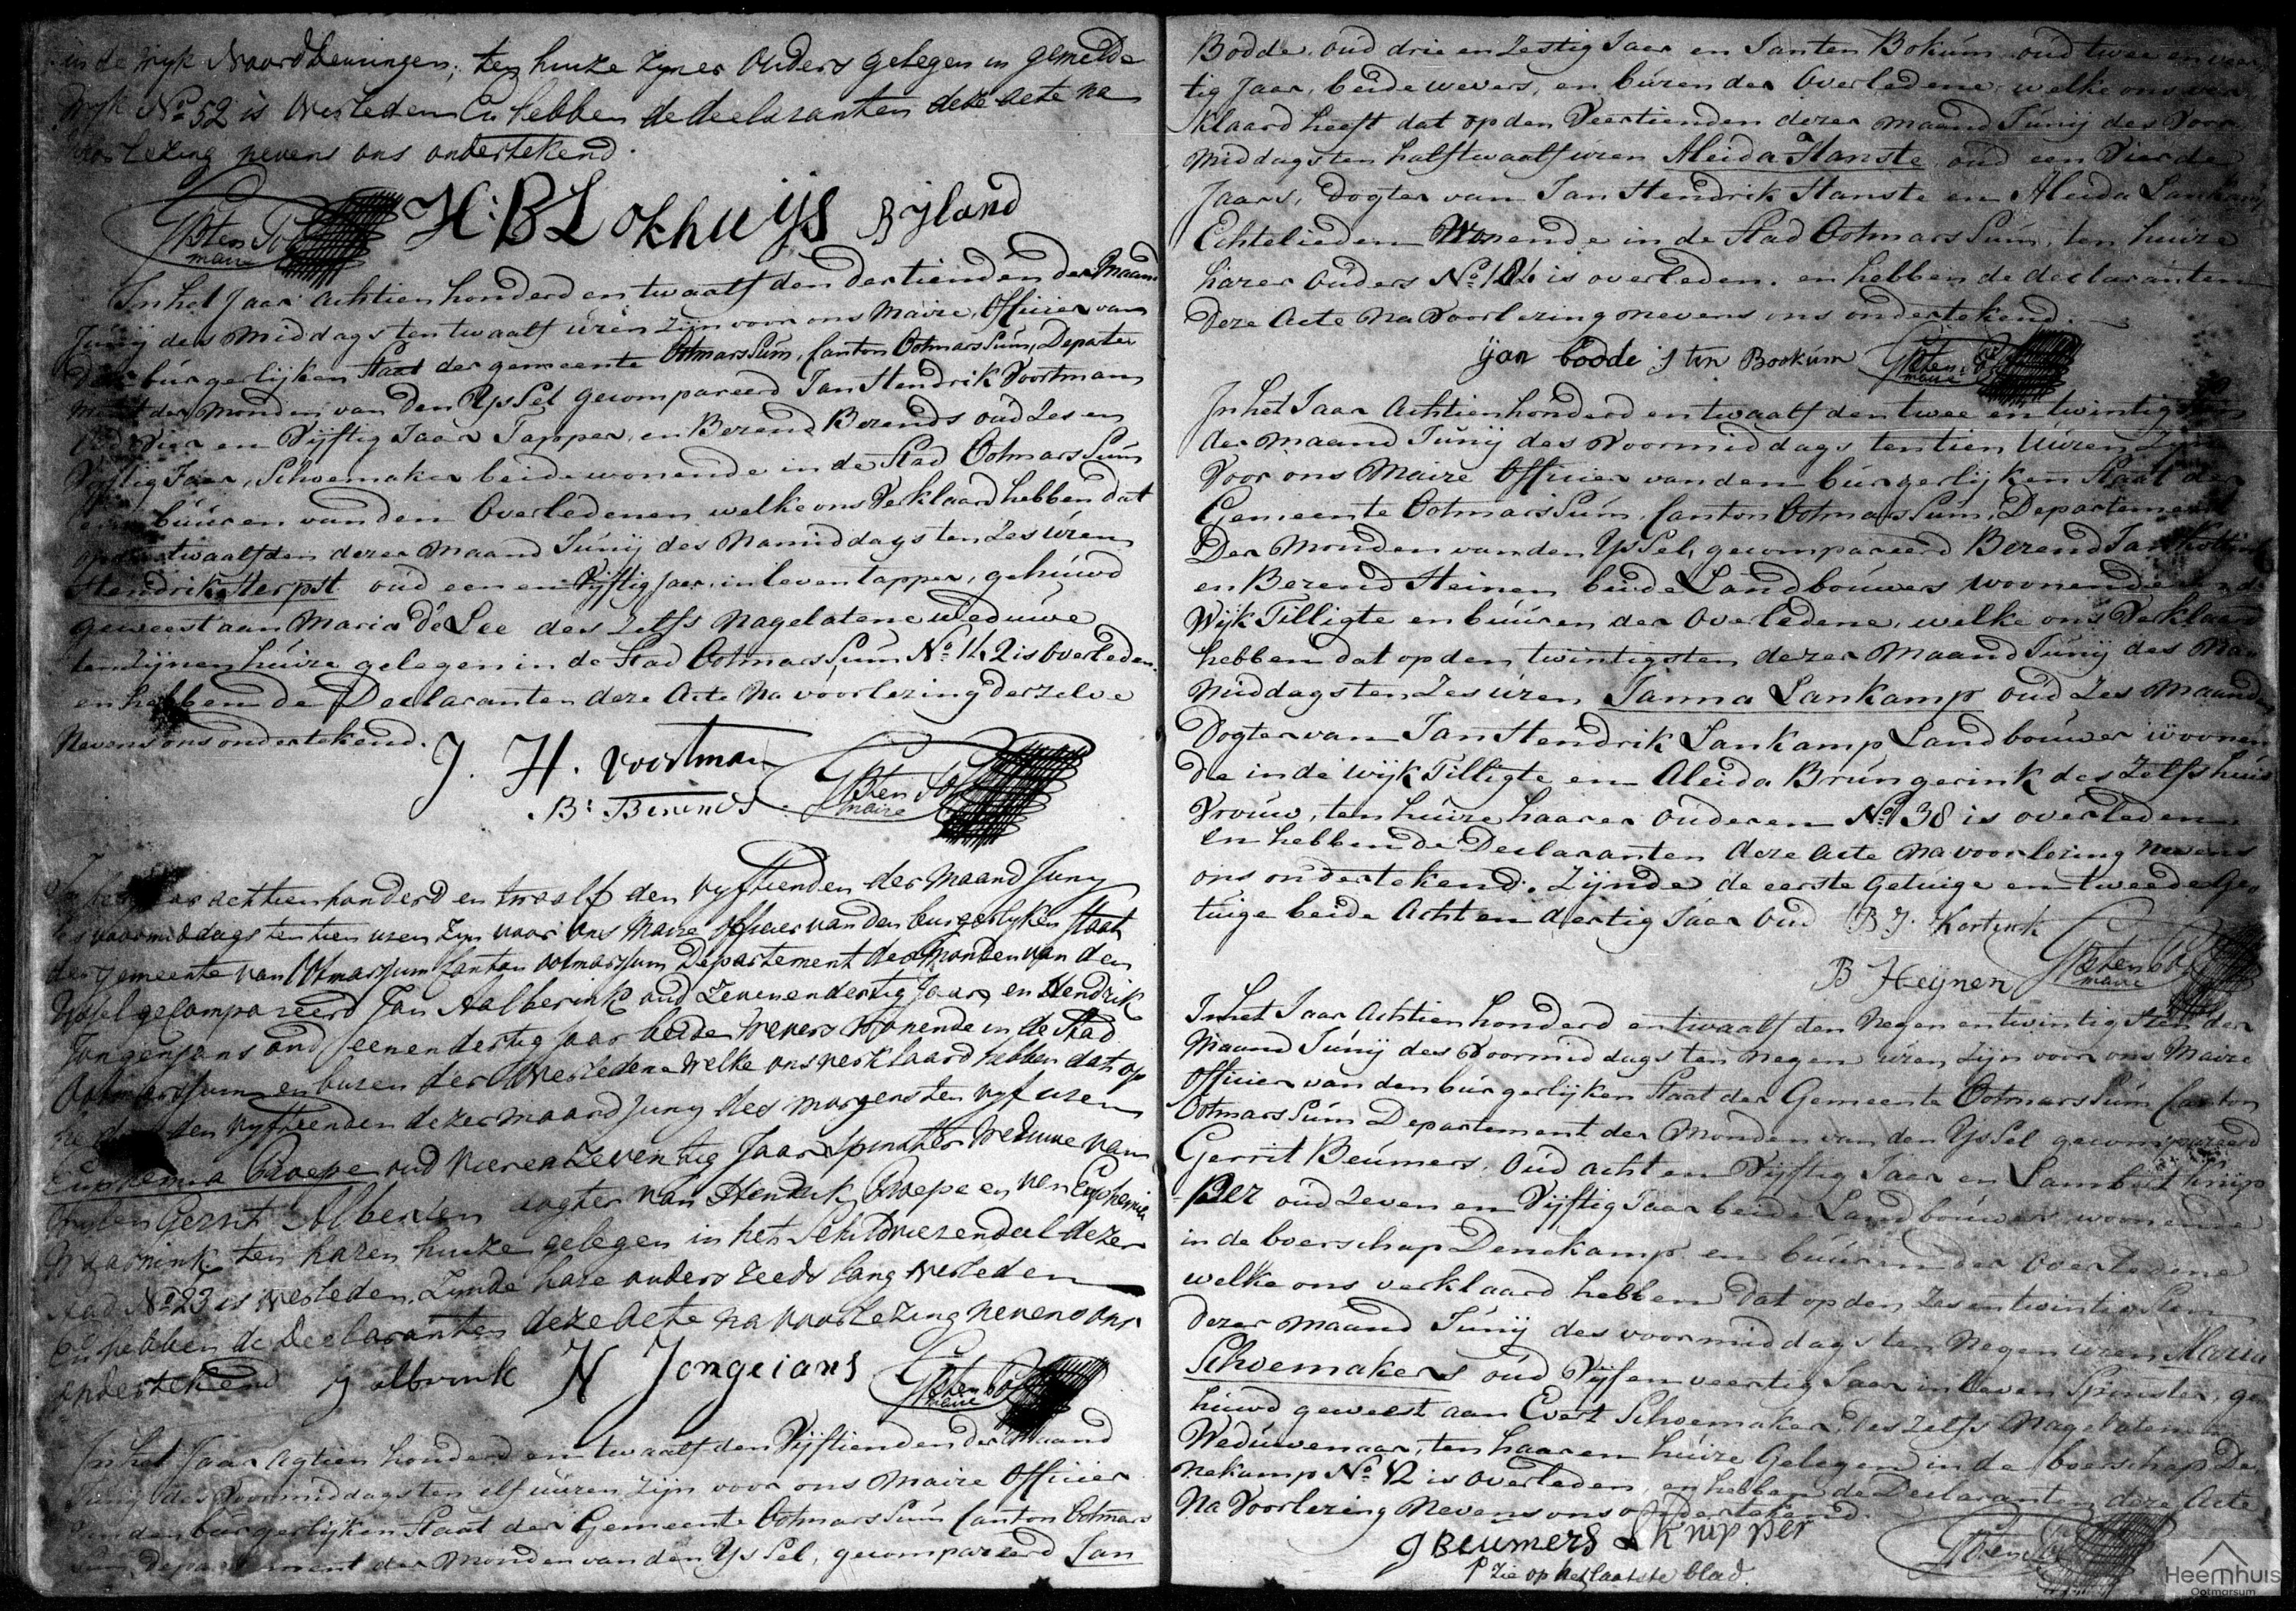 in de wijk Noordbeuningen; ten huize zyner Ouders gelegen in gemelde
Wyk No 52 is Overleden En hebben de declaranten deze acte na
voorlezing nevens ons ondertekend.
H: B Lokhuijs Bijland
maire
In het Jaar achtien honderd en twaalf den dertienden der Maand
Junij des Middags ten twaalf uren zijn voor ons Maire, Officier van
den burgerlijken Staat der gemeente Ootmarssum, Canton Ootmarssum, Departe
ment der Monden van den Yssel gecompareerd Jan Hendrik Voortman
oud vier en Vijftig Jaar Tapper, en Berend Berends oud zes en
Vijftig Jaar, Schoemaker beide wonende in de Stad Ootmarssum
en buuren van den Overledenen welke ons Verklaard hebben dat
op den twaalfden dezer Maand Junij des Namiddags ten zes uren
Hendrik Herpst oud een en Vijftig Jaar, in leven tapper, gehuwd
geweest aan Maria de Lee des zelfs Nagelatene weduwe
ten zijnen huize gelegen in de Stad Ootmarssum No 142 is overleden.
en hebben de Declaranten deze Acte Na voorlezing derzelve
Nevens ons ondertekend.
J. H. Voortman
B: Berends
maire
In het Jaar achtien honderd en twaalf den vyftienden der Maand Juny
des voormiddags ten tien uren zyn voor ons Maire officier van den burgerlyken Staat
der gemeente van Ootmarssum Canton Ootmarssum Departement der Monden van den
Yssel gecompareerd Jan Aalberink oud zevenendertig Jaar, en Hendrik
Jongenjans oud eenendertig Jaar beide Wevers Wonende in de Stad
Ootmarssum en buren der Overledene Welke ons verklaard hebben dat op
den vyftienden dezer maand Juny des morgens ten vyf uren
Euphemia Croepe oud vierenzeventig Jaar Spinster Weduwe van
wylen Gerrit Alberden dogter van Hendrik Croepe en van Euphemia
ten haren huize gelegen in het dezer
stad No 23 is Overleden, Zynde hare ouders reeds lang Overleden
En hebben de declaranten deze acte na voorlezing nevens ons
ondertekend J albrink H Jongeians
maire
In het Jaar agtien honderd en twaalf den Vijftienden der Maand
Junij des Voormiddags ten elf uuren zijn voor ons Maire Officier
van den burgerlijken Staat der Gemeente Ootmarssum Canton Ootmars
sum, Departement der Monden van den Yssel, gecompareerd Jan
Bodde, oud drie en zestig Jaar en Jan ten Bokum oud twee en veer
tig Jaar, beide wevers, en buren der Overledene, welke ons ver
klaard heeft dat op den Veertienden dezer maand Junij des Voor
middags ten half twaalf uren Aleida Hanste oud een Vierde
Jaars, Dogter van Jan Hendrik Hanste en Aleida Lankamp
Echtelieden Wonende in de Stad Ootmarssum, ten huize
harer Ouders No is overleden. en hebben de declaranten
Deze Acte Na Voorlezing nevens ons ondertekend.
Yan bodde J ten Bookum
maire
In het Jaar Achtienhonderd en twaalf den twee en twintigsten
der maand Junij des Voormiddags ten tien Uuren Zijn
Voor ons Maire Officier van den burgerlijken Staat der
Gemeente Ootmarssum, Canton Ootmarssum, Departement
Der Monden van den Yssel, gecompareerd Berend Jan
en Berend Heinen beide Landbouwers woonende in de
Wijk Tilligte en buuren der Overledene, welke ons Verklaard
hebben dat op den twintigsten dezer Maand Junij des Na
middags ten Zes uren Janna Lankamp oud Zes Maanden
Dogter van Jan Hendrik Lankamp Landbouwer woonen
de in de Wijk Tilligte en Aleida Brungerink des Zelfs huis
Vrouw, ten huize haarer ouderen No 38 is overleden
en hebben de Declaranten deze Acte na voorlezing nevens
ons ondertekend. Zijnde de eerste Getuige en tweede Ge
tuige beide Acht en dertig Jaar Oud B J. Kortink
B Heynen
maire
In het Jaar Achtienhonderd en twaalf den Negen en twintigsten der
Maand Junij des Voormiddags ten negen uren zijn voor ons Maire
Officier van den burgerlijken Staat der Gemeente Ootmarssum Canton
Ootmarssum Departement der Monden van den Yssel gecompareerd
Gerrit Beumers, Oud acht en Vijftig Jaar en Lambert Knip
per oud zeven en Vijftig Jaar beide Landbouwers woonende
in de boerschap Denekamp en buuren der Overledene
welke ons verklaard hebben Dat op den Zes en twintigsten
dezer maand Junij des voormiddags ten Negen uren Maria
Schoemakers oud Vijf en veertig Jaar in leven Spinster, ge
huwd geweest aan Evert Schoemaker, des zelfs Nagelatene
Weduwenaar, ten haaren huize Gelegen in de boerschap De
nekamp No 12 is Overleden, en hebben de Declaranten deze Acte
Na Voorlezing Nevens ons ondertekend.
G Beumers L Knipper
zie op het laatste blad.
Heemhuis
Ootmarsum